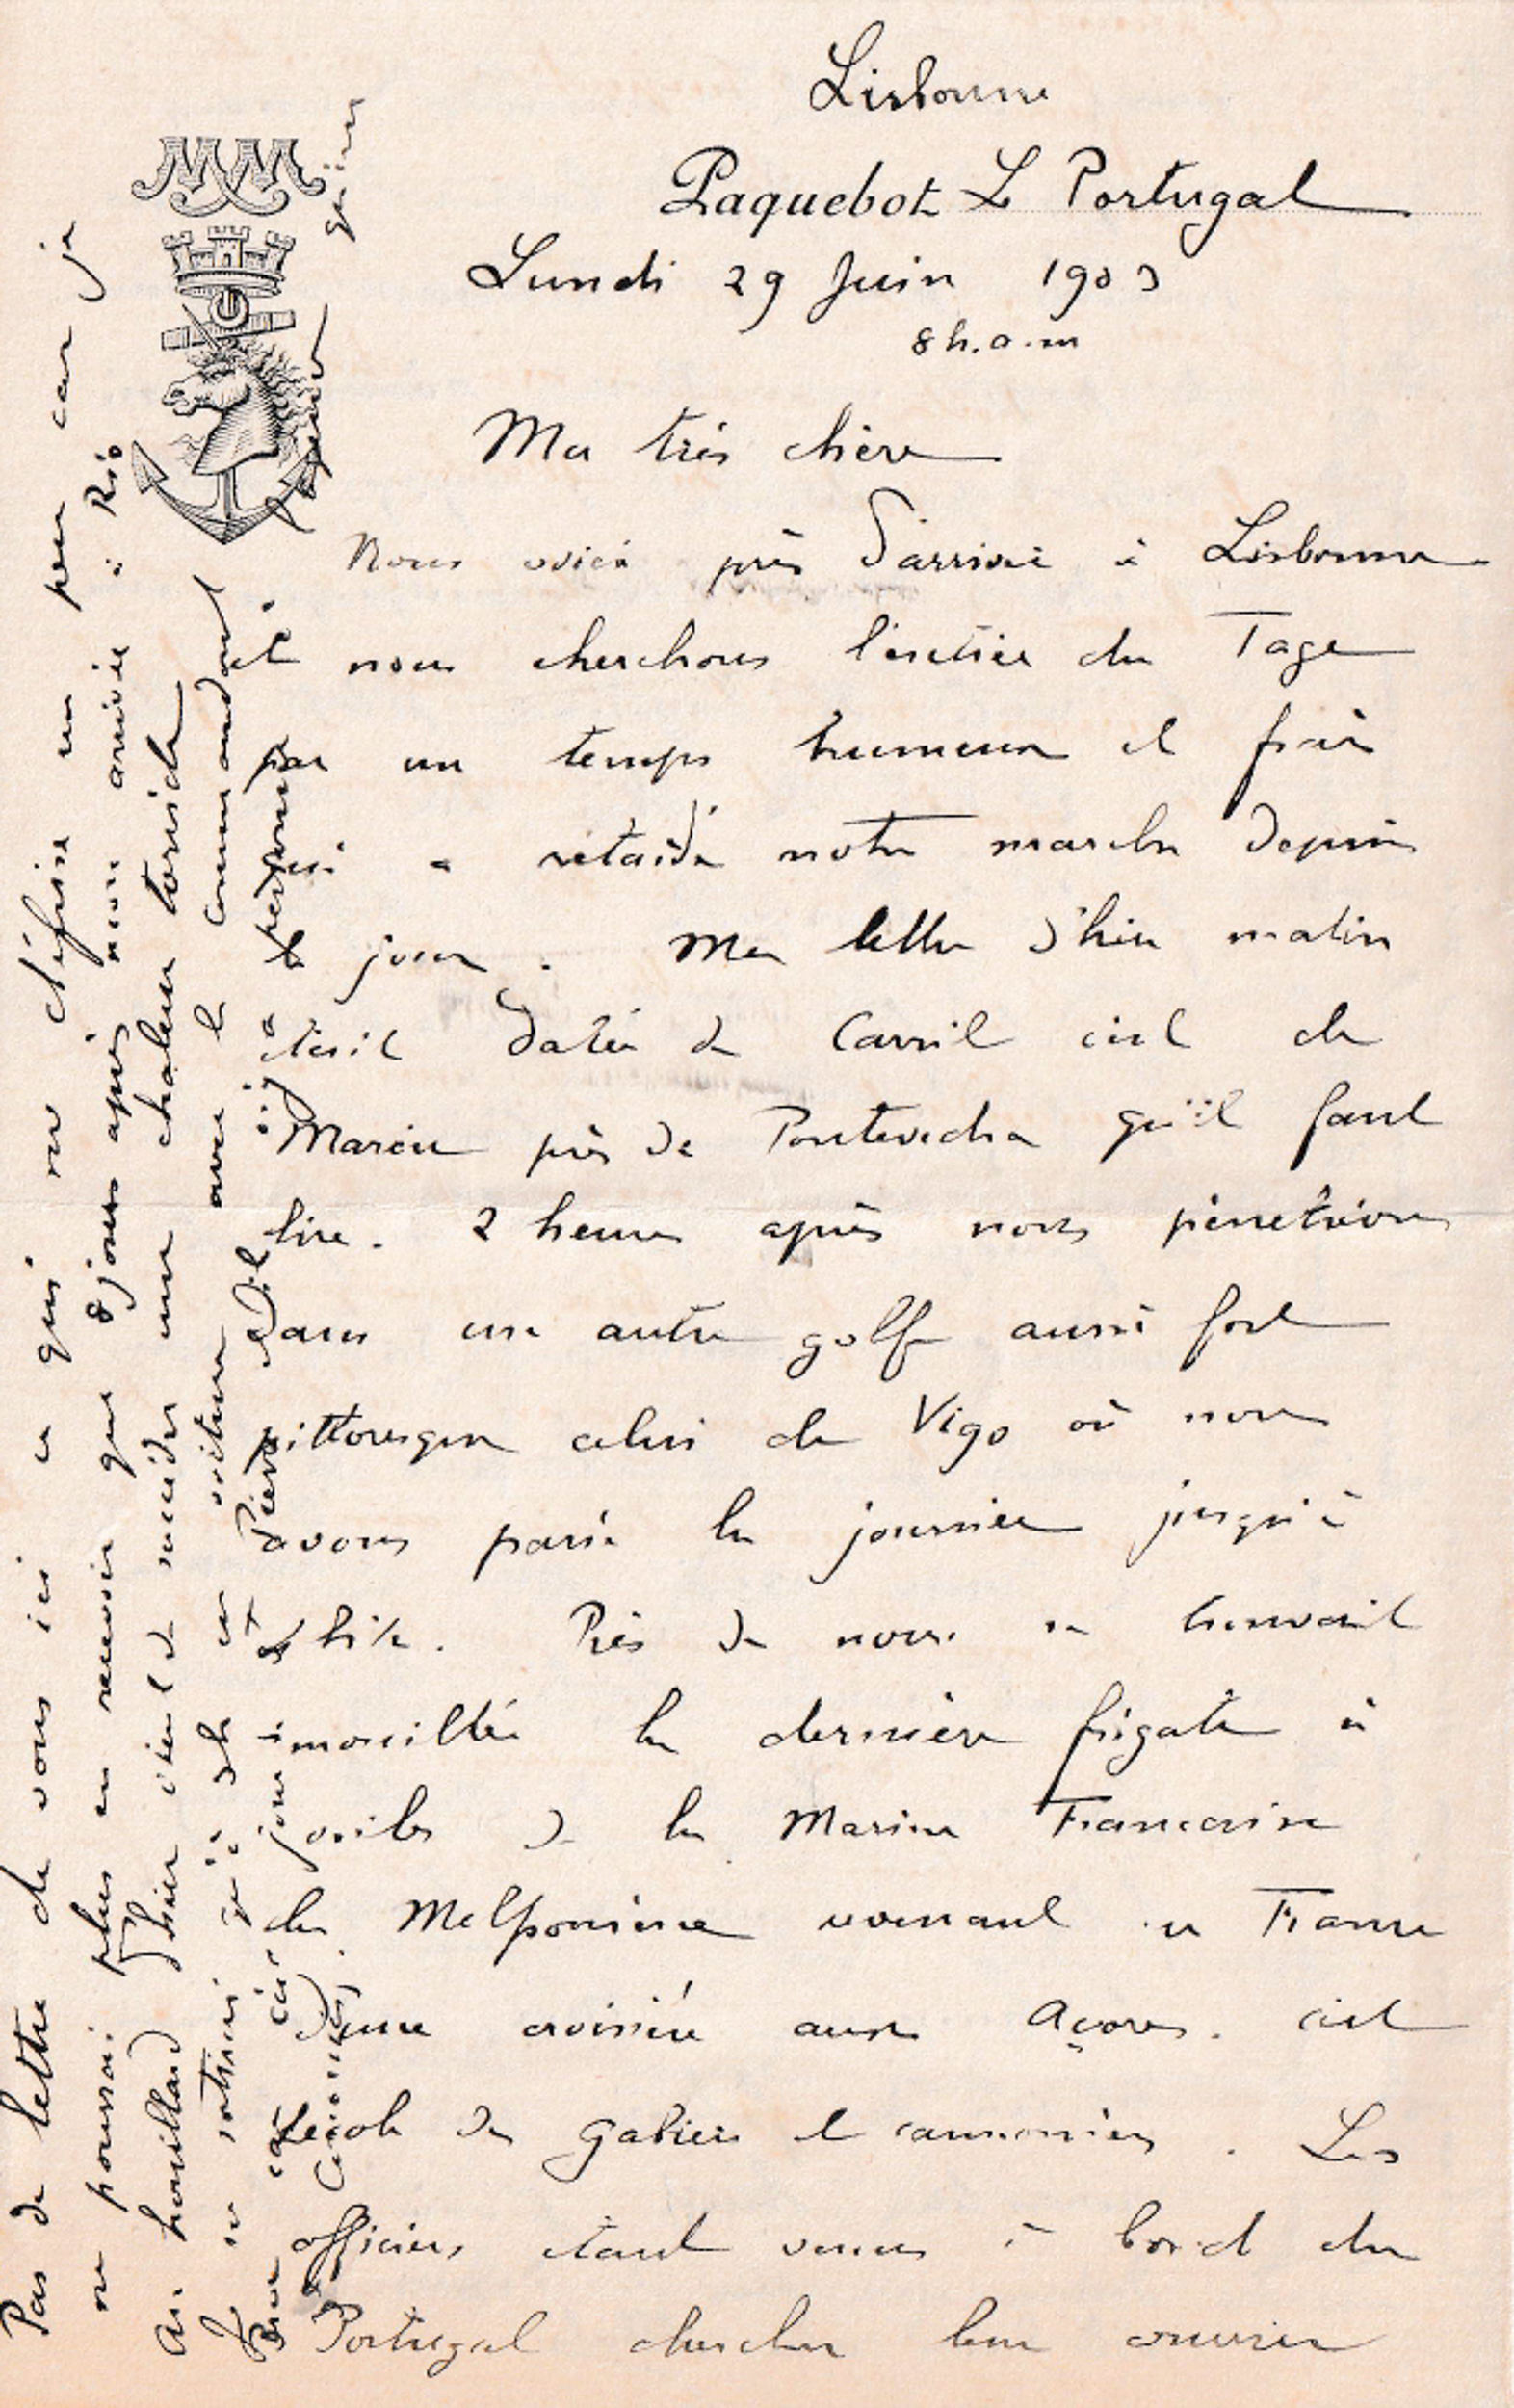 Lisbonne
Paquebot Le Portugal
Lundi 29 Juin 1903
8 h. a.m
MM
Ma très chère
Nous voici près d'arriver à Lisbonne
et nous cherchons l'entrée du Tage
par un temps brumeux et frais
qui a retardé notre marche depuis
le jour. Ma lettre d'hier matin
était datée de Carril c'est de
Marin près de Pontevedra qu'il faut
lire. 2 heures après nous pénétrions
dans un autre golfe aussi fort
pittoresque celui de Vigo où nous
avons passé la journée jusqu'à
Près de nous se trouvait
mouillée la dernière frégate à
voiles de la Marine Française
la Melpomène revenant en France
d'une croisière aux Açores. c'est
l'école des gabiers et canonniers. Les
officiers étant venus à bord du
Portugal chercher leur courrier
Pas de lettre de vous ici ce qui me défrise un peu car je
ne pourrai plus en recevoir que 8 jours après mon arrivée à Rio
Au brouillard d'hier vient de succéder une chaleur torride
Je ne sortirai qu'à 3h en voiture avec le commandant
Pierre